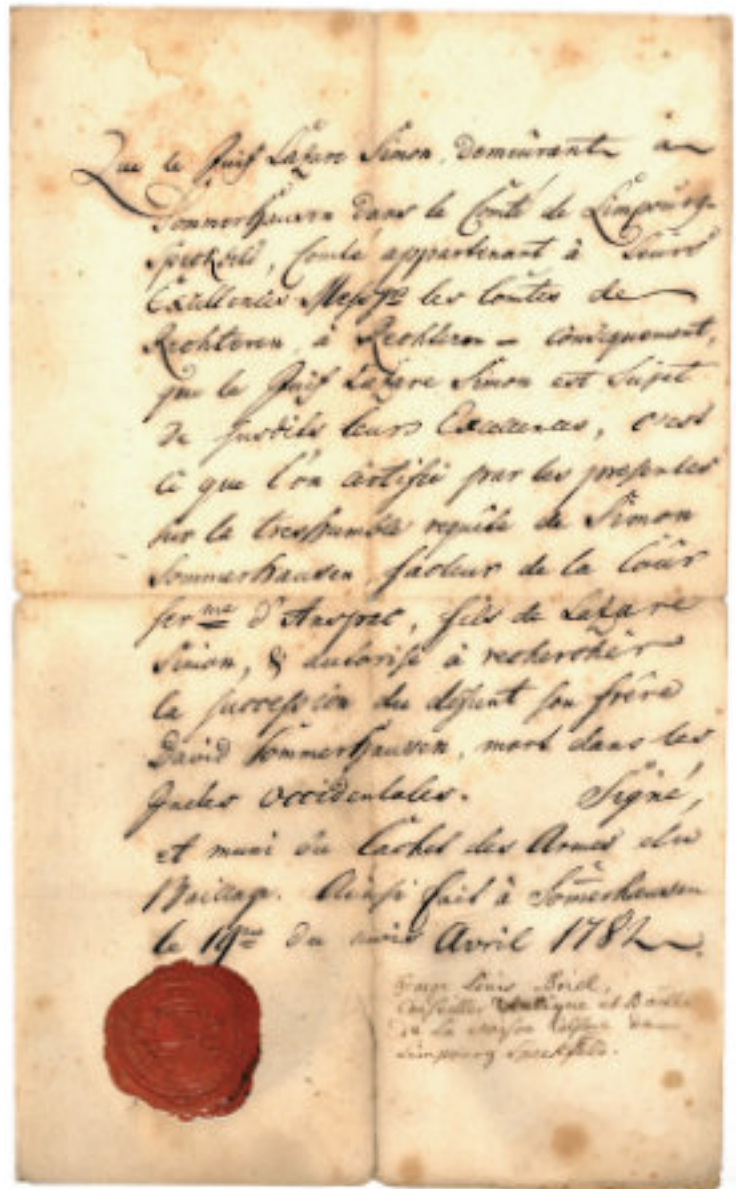 Que le Juif Lazare Simon, demeurant à
Sommerhausen dans le Comté de Limpourg-
Speckfeld, Comté appartenant à Leurs
Excellences Mess.rs les Comtes de
Rechteren à Rechteren - conséquement,
que le Juif Lazare Simon est Sujet
de susdits leurs Excellences, c'est
ce que l'on certifie par les presentes
sur la treshumble requête de Simon
Sommerhausen, facteur de la Cour
ser.me d'Anspac, fils de Lazare
Simon, & autorisé à rechercher
la succession du défunt son frère
David Sommerhausen, mort dans les
Indes occidentales. Signé,
et muni du Cachet des Armes du
Baillage. Ainsi fait à Som̃erhausen
le 19me du mois Avril 1782
George Louis
Conseiller Aulique et Bailli
de la
Limpourg Speckfeld.